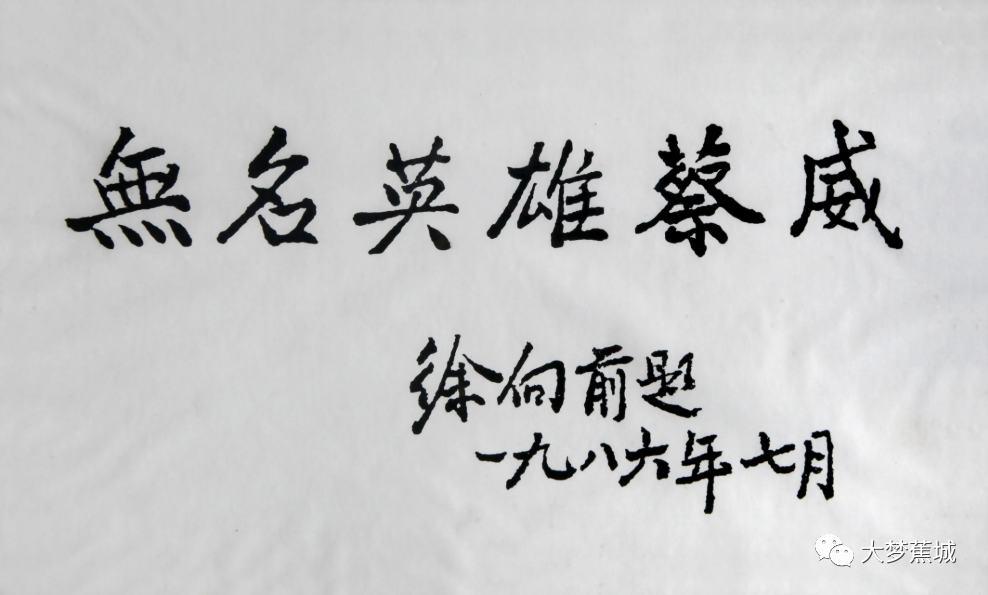 無名英雄蔡威
徐向前题
一九八六年七月
大梦蕉城